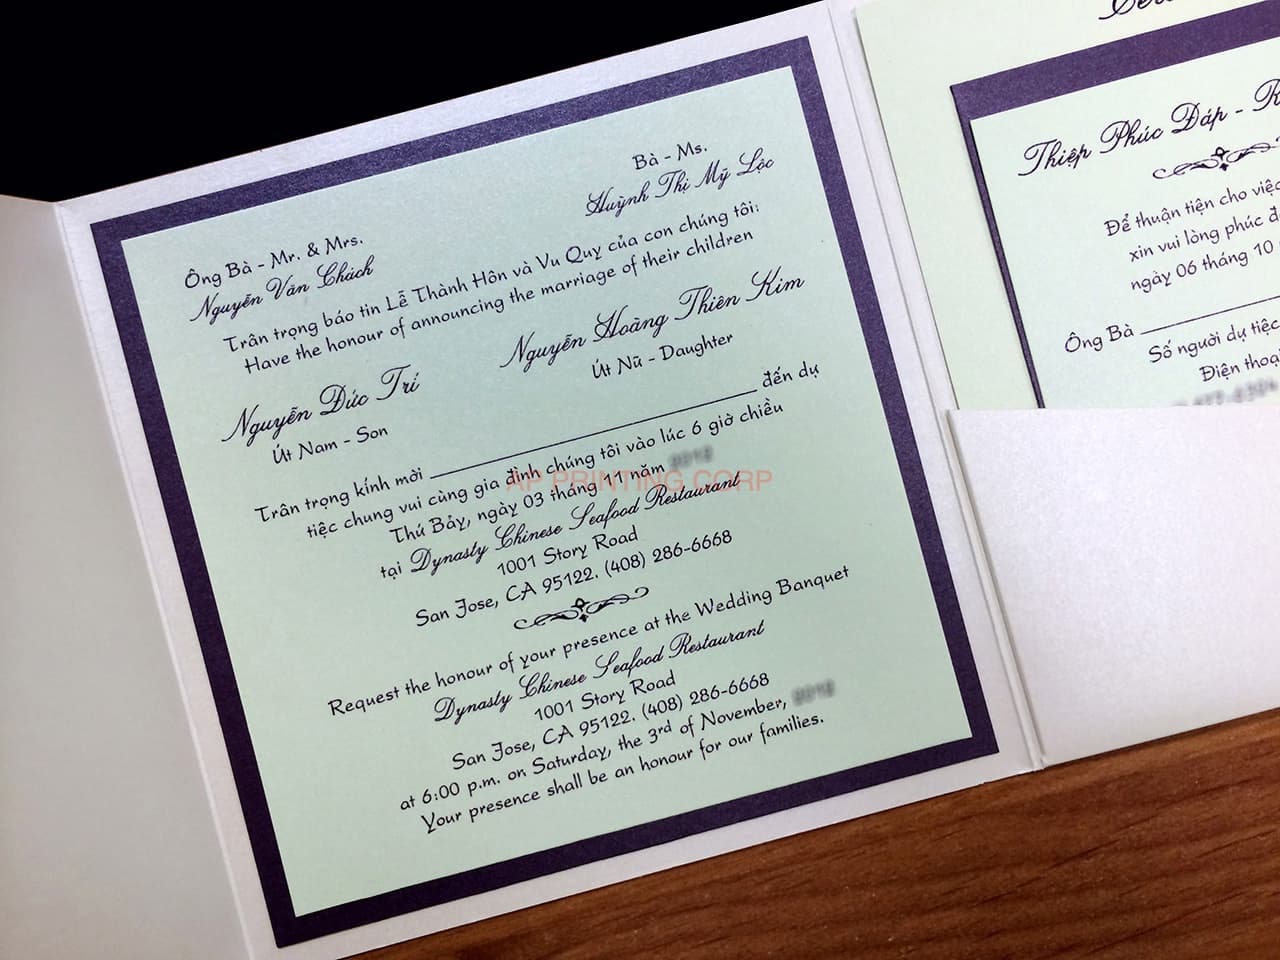 Ông Bà - Mr. & Mrs.
Nguyễn Văn Chách
Bà - Ms.
Huỳnh Thị Mỹ Lộc
Trân trọng báo tin Lễ Thành Hôn và Vu Quy của con chúng tôi:
Have the honour of announcing the marriage of their children
Nguyễn Đức Trí
Út Nam - Son
Nguyễn Hoàng Thiên Kim
Út Nữ - Daughter
Trân trọng kính mời ____________ đến dự
tiệc chung vui cùng gia đình chúng tôi vào lúc 6 giờ chiều
Thứ Bảy, ngày 03 tháng 11 năm
tại Dynasty Chinese Seafood Restaurant
1001 Story Road
San Jose, CA 95122. (408) 286-6668
Request the honour of your presence at the Wedding Banquet
Dynasty Chinese Seafood Restaurant
1001 Story Road
San Jose, CA 95122. (408) 286-6668
at 6:00 p.m. on Saturday, the 3rd of November,
Your presence shall be an honour for our families.
AP PRINTING CORP
Thiệp Phúc Đáp - R
Để thuận tiện cho việc
xin vui lòng phúc đ
ngày 06 tháng 10
Ông Bà ____________
Số người dự tiệc
Điện thoại